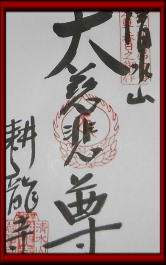 清水山
大慈悲尊
耕龍寺